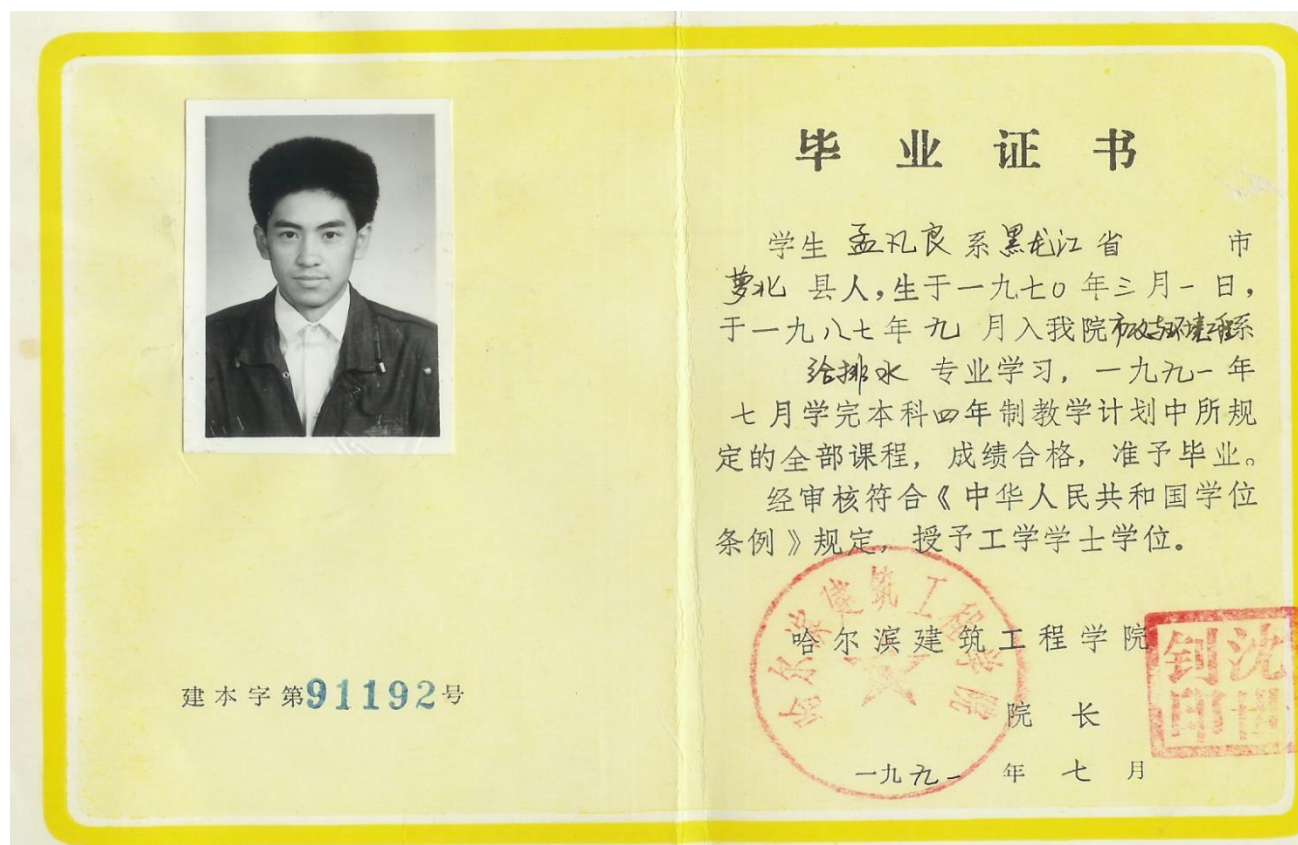 建本字第91192号
毕业证书
学生 孟凡良 系黑龙江省 市
萝北 县人，生于一九七0年三月一日，
于一九八七年九月入我院市政与环境工程系
给排水 专业学习，一九九一年
七月学完本科四年制教学计划中所规
定的全部课程，成绩合格，准予毕业。
经审核符合《中华人民共和国学位
条例》规定，授予工学学士学位。
哈尔滨建筑工程学院
哈尔滨建筑工程学院
院长
沈世钊印
一九九一年七月